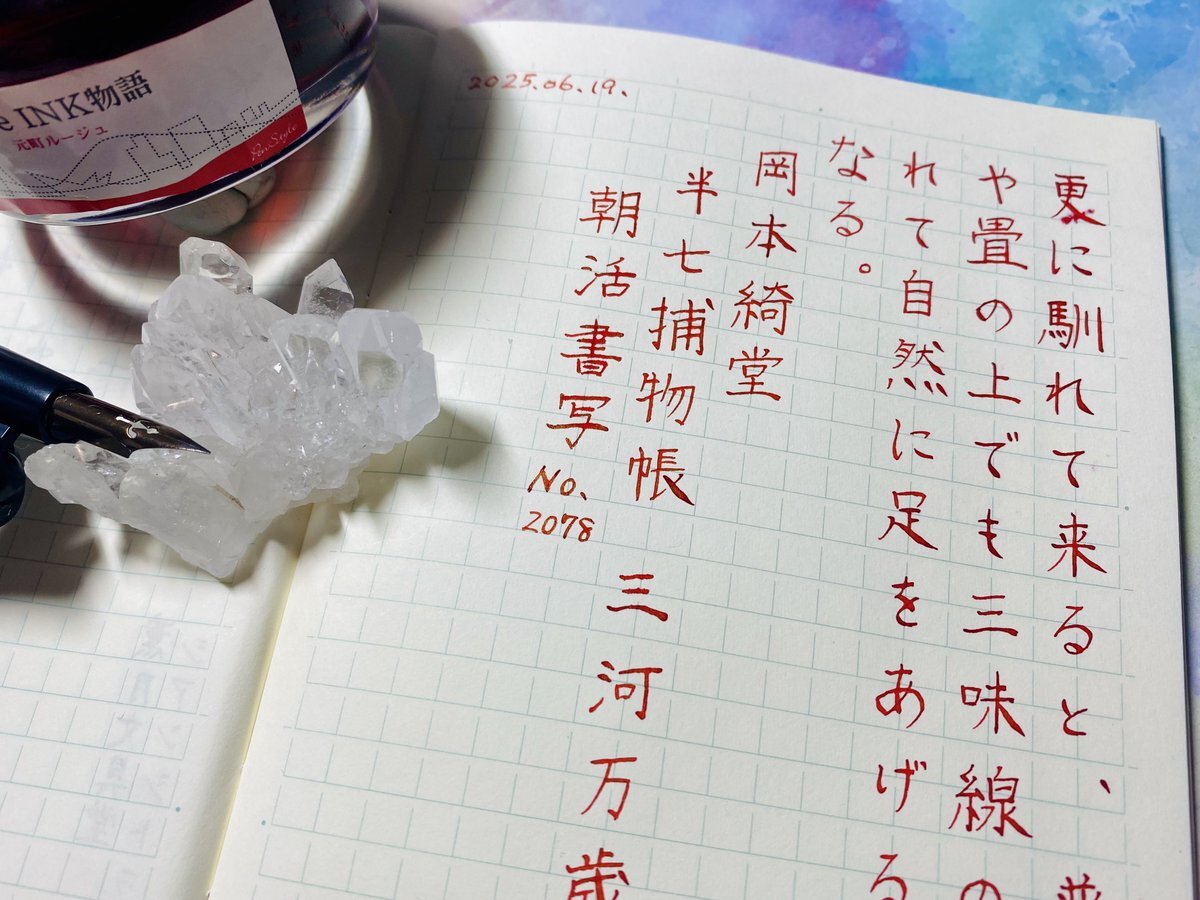 2025.06.19.
更に馴れて来ると、普
や畳の上でも三味線の
れて自然に足をあげる
なる。
岡本綺堂
半七捕物帳 三河万歳
朝活書写 No.
2078
e INK物語
元町ルージュ
Pen Style